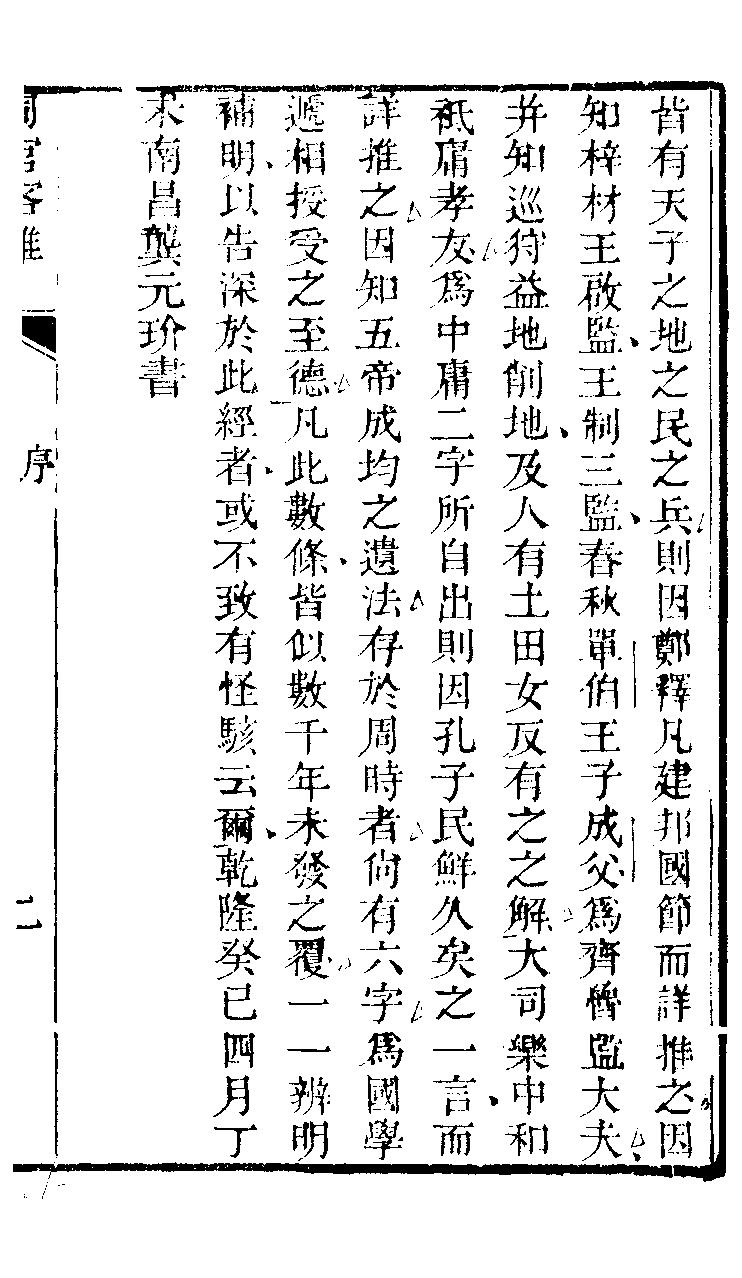 皆有天子之地之民之兵則因鄭釋凡建邦國節而詳推之因
知梓材王啟監王制三監春秋單伯王子成父爲齊僭監大夫
并知巡狩益地削地及人有土田女反有之之解大司樂中和
祗庸孝友爲中庸二字所自出則因孔子民鮮久矣之一言而
詳推之因知五帝成均之遺法存於周時者尙有六字爲國學
遞相授受之至德凡此數條皆似數千年未發之覆一一辨明
補明以告深於此經者或不致有怪駭云爾乾隆癸巳四月丁
未南昌龔元玠書
客難
序
二